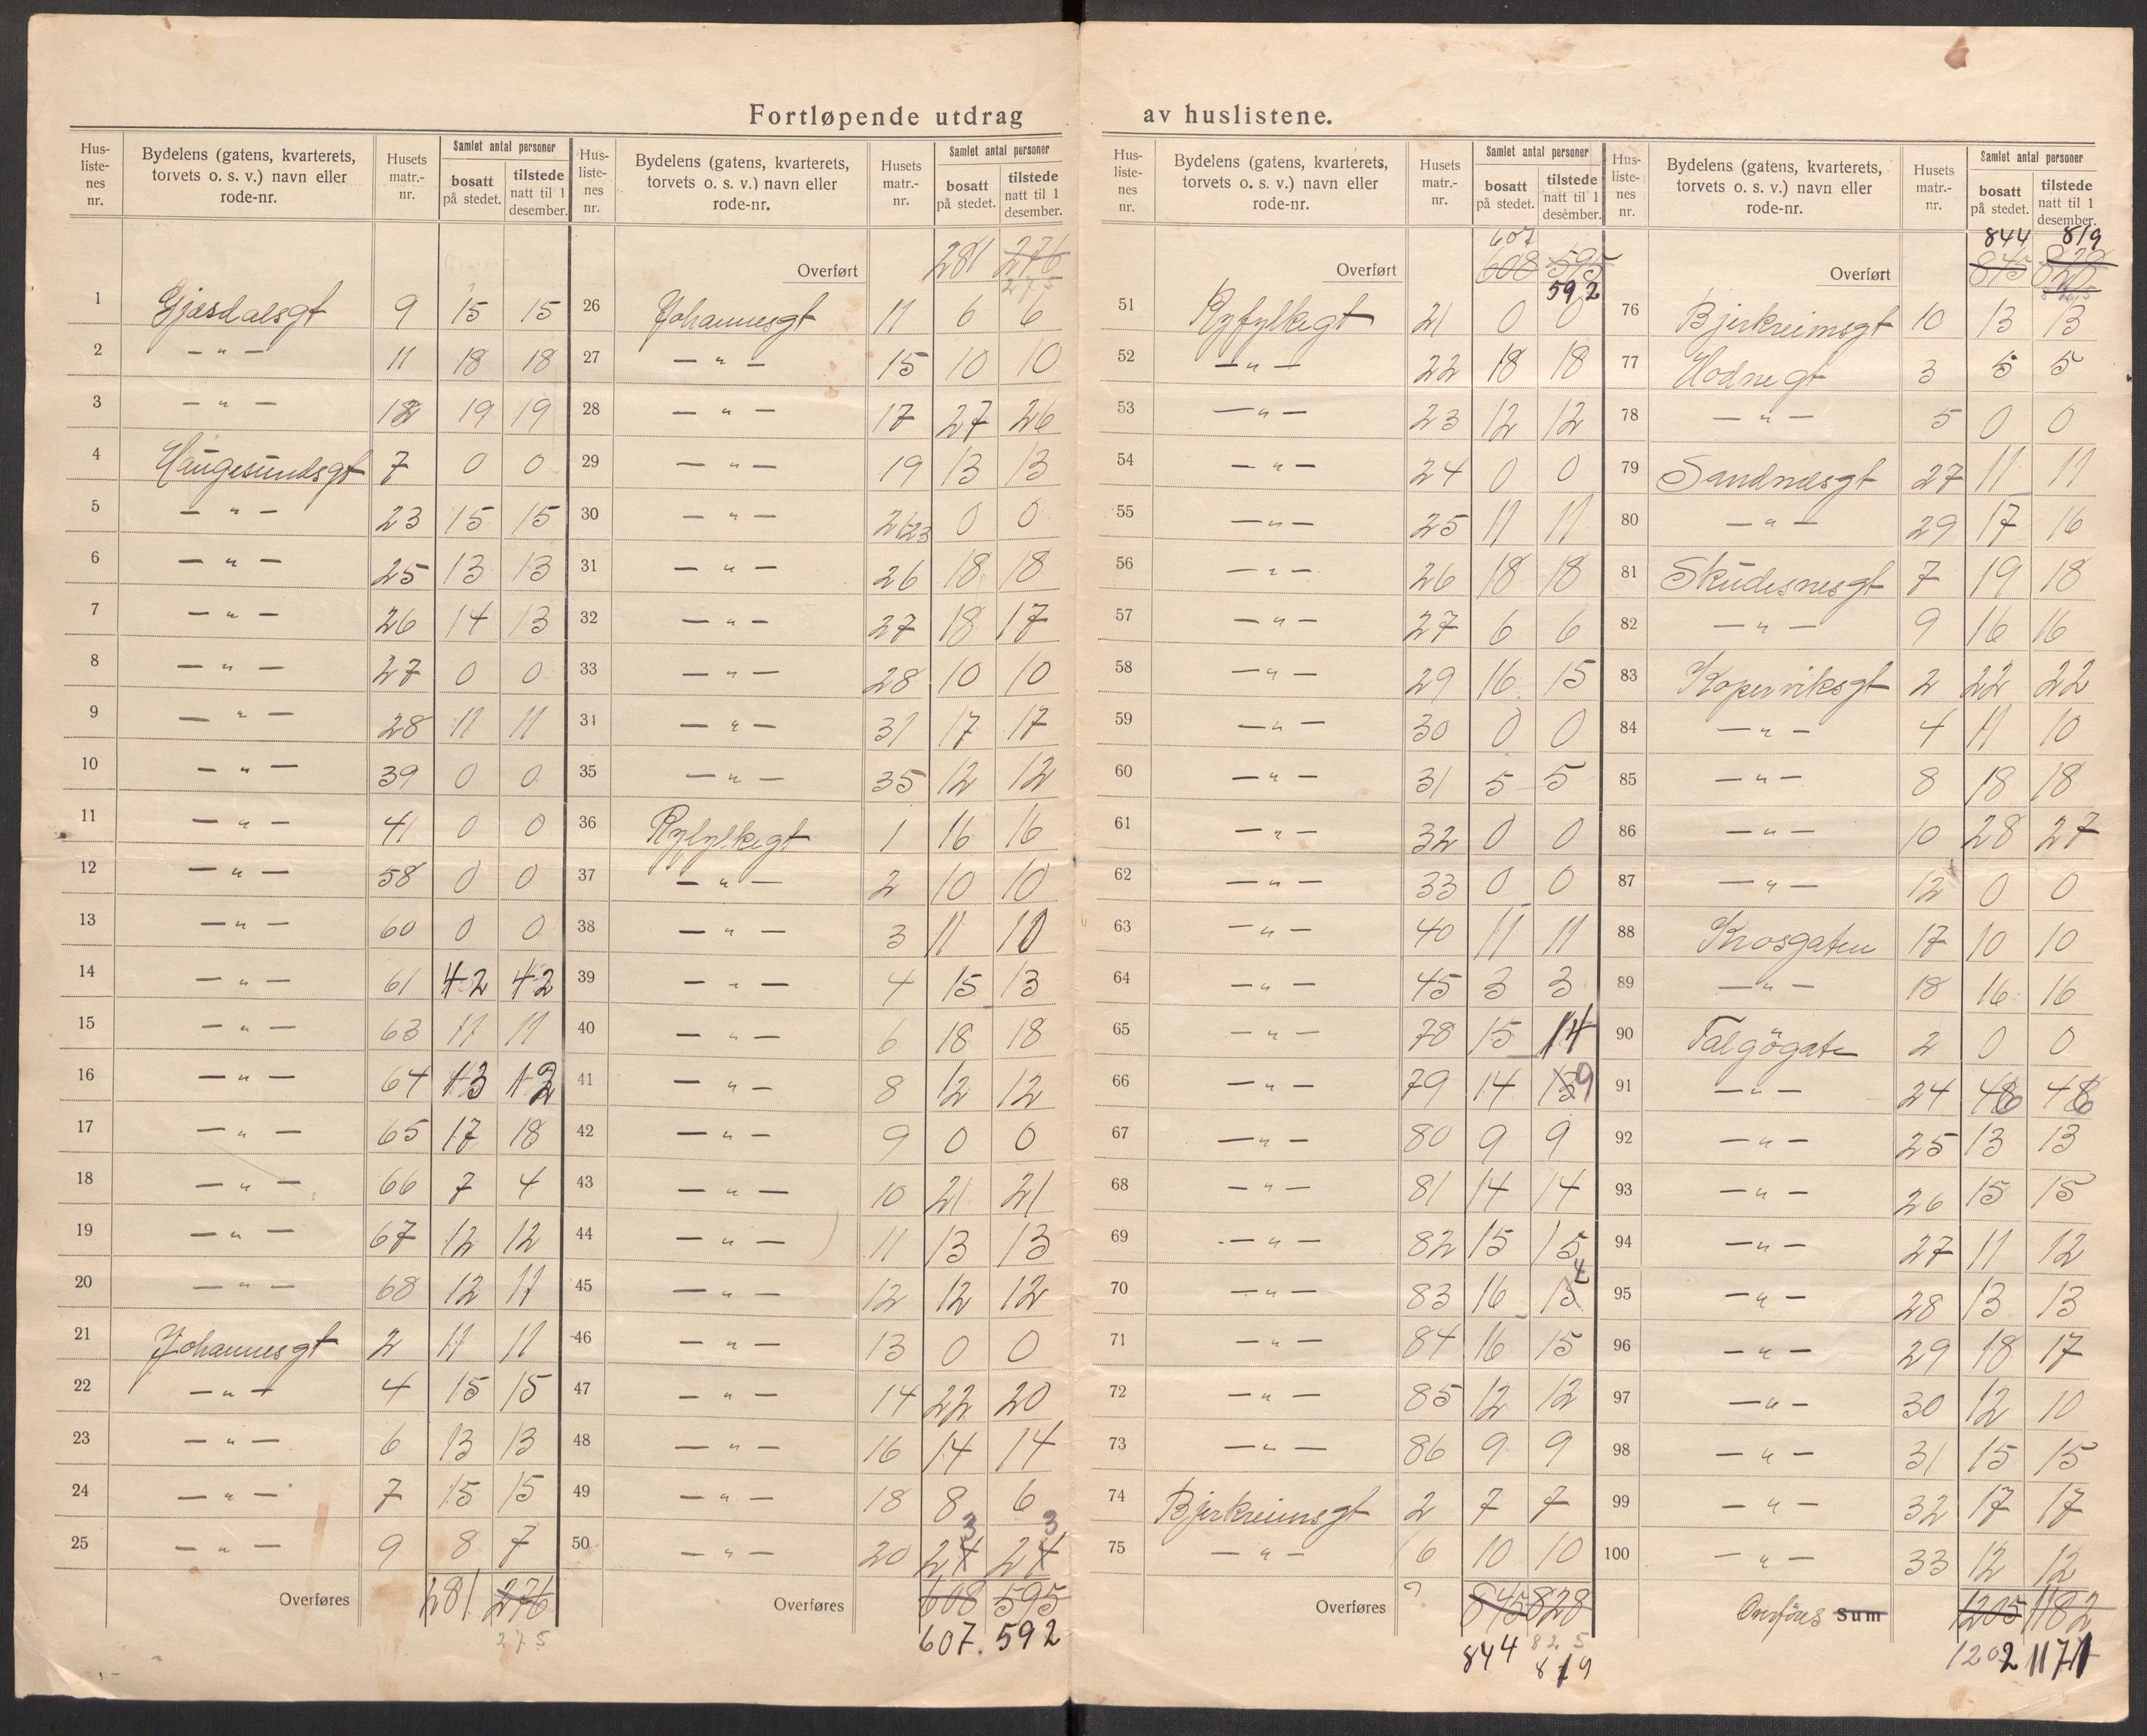 Fortløpende utdrag av huslistene.
Hus-liste-nes nr. | Bydelens (gatens, kvarterets, torvets o. s. v.) navn eller rode-nr. | Husets matr.-nr. | Samlet antal personer bosatt på stedet. | tilstede natt til 1 desember.
1 Gjesdalsgt 9 15 15
2 — " — 11 18 18
3 — " — 18 19 19
4 Haugesundsgt 7 0 0
5 — " — 23 15 15
6 — " — 25 13 13
7 — " — 26 14 13
8 — " — 27 0 0
9 — " — 28 11 11
10 — " — 39 0 0
11 — " — 41 0 0
12 — " — 58 0 0
13 — " — 60 0 0
14 — " — 61 42 42
15 — " — 63 11 11
16 — " — 64 13 12
17 — " — 65 17 18
18 — " — 66 7 4
19 — " — 67 12 12
20 — " — 68 12 11
21 Johannesgt 2 11 11
22 — " — 4 15 15
23 — " — 6 13 13
24 — " — 7 15 15
25 — " — 9 8 7
Overføres 281 276
275
Hus-liste-nes nr. | Bydelens (gatens, kvarterets, torvets o. s. v.) navn eller rode-nr. | Husets matr.-nr. | Samlet antal personer bosatt på stedet. | tilstede natt til 1 desember.
Overført 281 276
275
26 Johannesgt 11 6 6
27 — " — 15 10 10
28 — " — 17 27 26
29 — " — 19 13 13
30 — " — 21/23 0 0
31 — " — 26 18 18
32 — " — 27 18 17
33 — " — 28 10 10
34 — " — 31 17 17
35 — " — 35 12 12
36 Ryfylkegt 1 16 16
37 — " — 2 10 10
38 — " — 3 11 10
39 — " — 4 15 13
40 — " — 6 18 18
41 — " — 8 12 12
42 — " — 9 0 0
43 — " — 10 21 21
44 — " — 11 13 13
45 — " — 12 12 12
46 " — 13 0 0
47 — " — 14 22 20
48 — " — 16 14 14
49 — " — 18 8 6
3 3
50 — " — 20 24 24
Overføres 608 595
607. 592
Hus-liste-nes nr. | Bydelens (gatens, kvarterets, torvets o. s. v.) navn eller rode-nr. | Husets matr.-nr. | Samlet antal personer bosatt på stedet. | tilstede natt til 1 desember.
607
Overført 608 595
592
51 Ryfylkegt 21 0 0
52 — " — 22 18 18
53 — " — 23 12 12
54 — " — 24 0 0
55 — " — 25 11 11
56 — " — 26 18 18
57 — " — 27 6 6
58 — " — 29 16 15
59 — " — 30 0 0
60 — " — 31 5 5
61 — " — 32 0 0
62 — " — 33 0 0
63 — " — 40 11 11
64 — " — 45 3 3
65 — " — 78 15 14
66 — " — 79 14 13 9
67 — " — 80 9 9
68 — " — 81 14 14
69 — " — 82 15 15
4
70 — " — 83 16 15
71 — " — 84 16 15
72 — " — 85 12 12
73 — " — 86 9 9
74 Bjerkreimsgt 2 7 7
75 — " — 6 10 10
Overføres 845 828
844 825
819
Hus-liste-nes nr. | Bydelens (gatens, kvarterets, torvets o. s. v.) navn eller rode-nr. | Husets matr.-nr. | Samlet antal personer bosatt på stedet. | tilstede natt til 1 desember.
844 819
Overført 845 828
76 Bjerkreimsgt 10 13 13
77 Hodnegt 3 5 5
78 — " — 5 0 0
79 Sandnesgt 27 11 11
80 — " — 29 17 16
81 Skudesnesgt 7 19 18
82 — " — 9 16 16
83 Koperviksgt 2 22 22
84 — " — 4 11 10
85 — " — 8 18 18
86 — " — 10 28 27
87 — " — 12 0 0
88 Krosgaten 17 10 10
89 — " — 18 16 16
90 Talgögatn 2 0 0
91 — " — 24 46 46
92 — " — 25 13 13
93 — " — 26 15 15
94 — " — 27 11 12
95 — " — 28 13 13
96 — " — 29 18 17
97 — " — 30 12 10
98 — " — 31 15 15
99 — " — 32 17 17
100 — " — 33 12 12
Overföres Sum 1205 1182
1202 1171